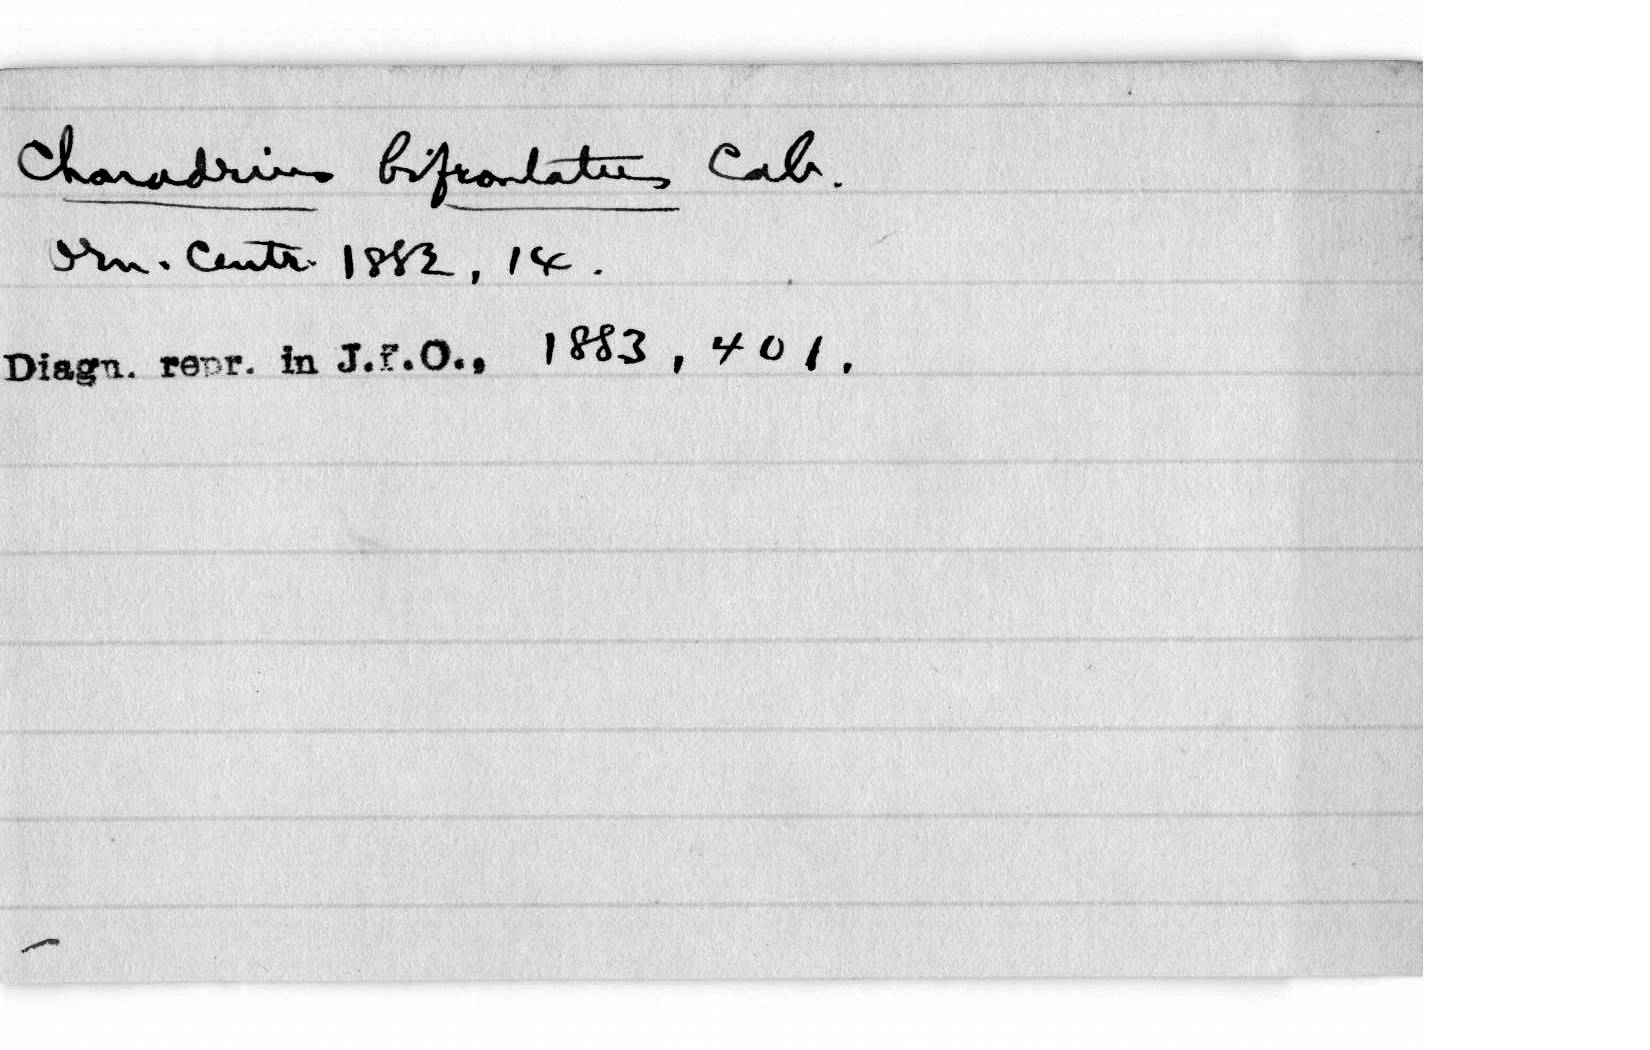 Charadrius bifrontatus Cab.
Orn. Centr. 1882, 14.
Diagn. repr. in J.f.O., 1883, 401.